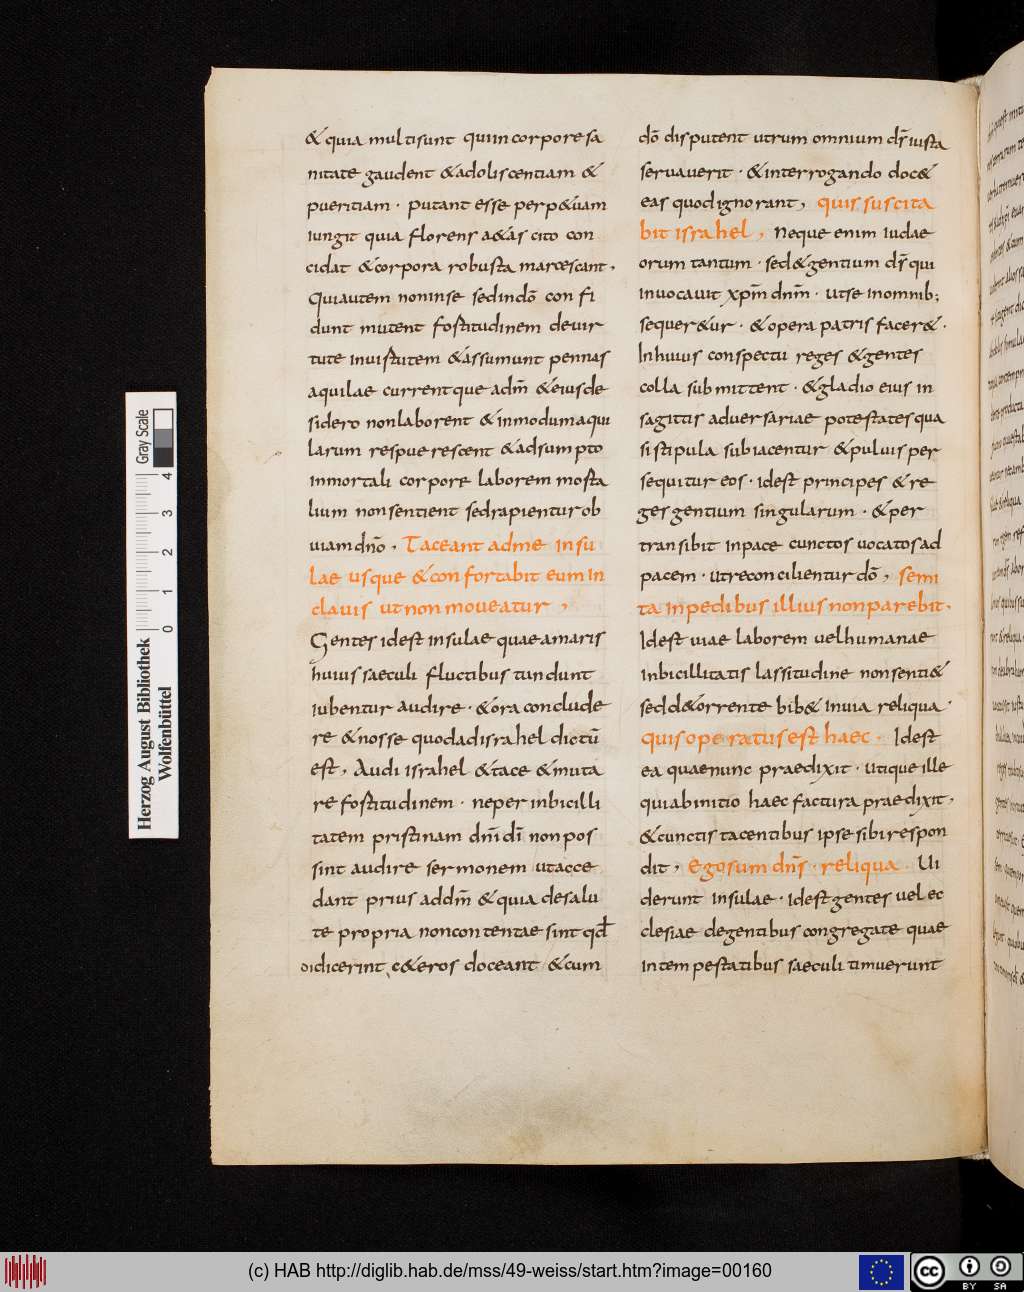 & quia multi sunt qui in corpore sa
nitate gaudent & adoliscentiam &
pueritiam · putant esse perp&uam
iungit quia florens a&as cito con
cidat & corpora robusta marcescant ,
Qui autem non in se sed in dō confi
dunt mutent fortitudinem de vir
tute in virtutem & assumunt pennas
aquilae currentque ad m̄ & eius de
sidero non laborent & in modum aqui
larum respuerescent & adsumpto
inmortali corpore laborem morta
lium non sentient sed rapientur ob
viam dn̄o , Taceant ad me insu
lae usque & confortabit eum in
clavis ut non moveatur ,
Gentes id est insulae quae amaris
huius saeculi fluctibus tundunt
iubentur audire · & ora conclude
re & nosse quod ad israhel dictū
est , Audi israhel & tace & muta
re fortitudinem · ne per inbicilli
tatem pristinam dn̄i dī non pos
sint audire sermonem ut acce
dant prius ad dm̄ & quia de salu
te propria non contentae sint qd̄
didicerint c&eros doceant & cum
dō disputent utrum omnium dr̄ iusta
servaverit · & interrogando doc&
eas quod ignorant , quis suscita
bit israhel , Neque enim iudae
orum tantum · sed & gentium dr̄ qui
invocavit xpm̄ dnm̄ · ut se in omnib;
sequer&ur · & opera patris facer& ·
In huius conspectu reges & gentes
colla submittent · & gladio eius in
sagittis adversariae potestates qua
si stipula subiacentur & pulvis per
sequitur eos · id est principes & re
ges gentium singularum · & per
transibit in pace cunctos vocatos ad
pacem · ut reconcilientur dō , semi
ta in pedibus illius non parebit ,
Id est viae laborem vel humanae
inbicillitatis lassitudine non senti&
sed de torrente bib& in via reliqua ·
quis operatus est haec · Id est
ea quae nunc praedixit · utique ille
qui ab initio haec factura praedixit ,
& cunctis tacentibus ipse sibi respon
dit , Ego sum dn̄s · reliqua · Vi
derunt insulae · id est gentes vel ec
clesiae degentibus congregate quae
in tempestatibus saeculi timuerunt
Herzog August Bibliothek
Wolfenbüttel
0 1 2 3 4
Gray Scale
(c) HAB http://diglib.hab.de/mss/49-weiss/start.htm?image=00160
cc BY SA